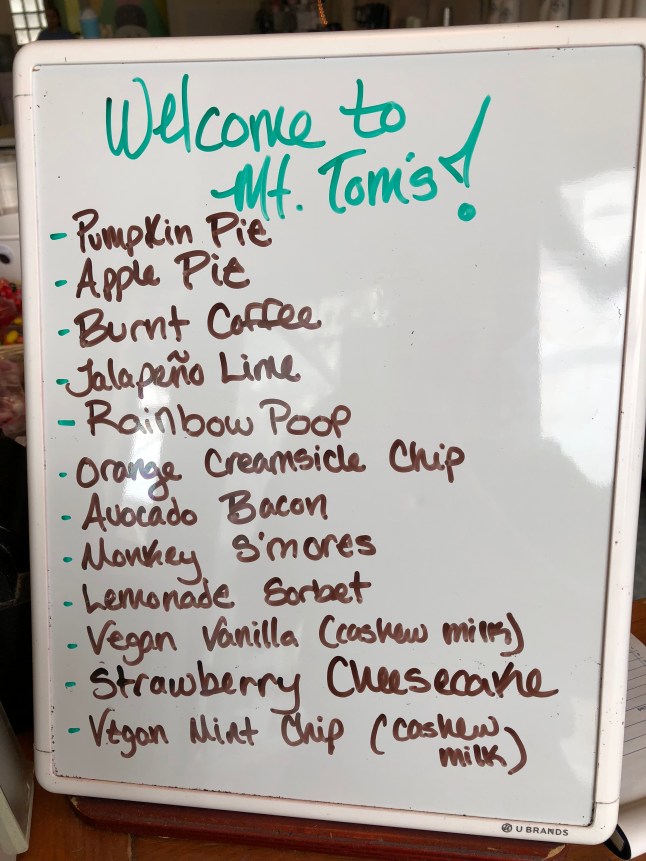 Welcome to
Mt. Tom's!
- Pumpkin Pie
- Apple Pie
- Burnt Coffee
- Jalapeño Lime
- Rainbow Poop
- Orange Creamsicle Chip
- Avocado Bacon
- Monkey S'mores
- Lemonade Sorbet
- Vegan Vanilla (cashew milk)
- Strawberry Cheesecake
- Vegan Mint Chip (cashew
milk)
U BRANDS